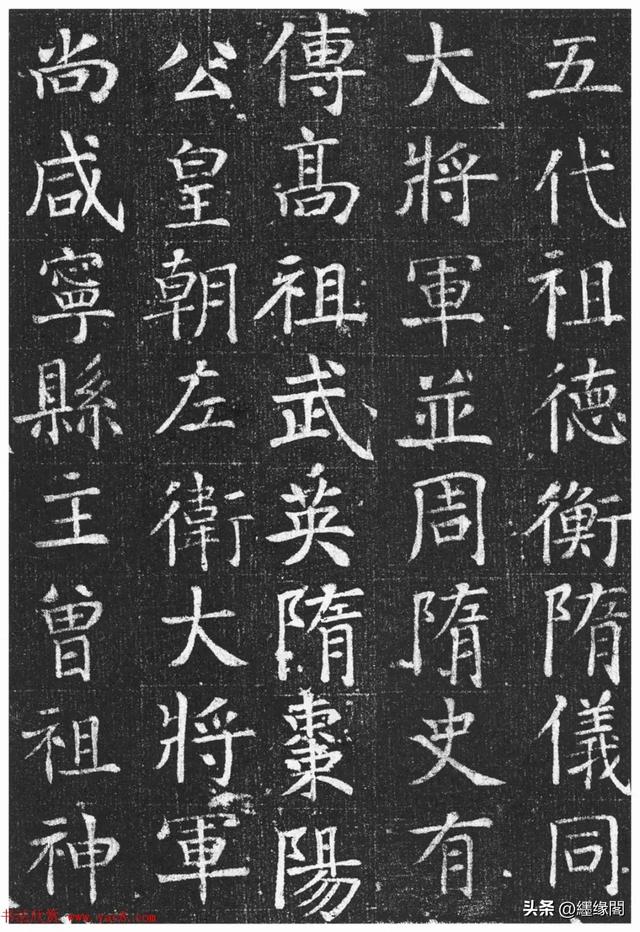 五代祖德衡隋儀同
大將軍並周隋史有
傳高祖武英隋棗陽
公皇朝左衛大將軍
尚咸寧縣主曾祖神
书法欣赏 www.yac8.com
头条 @纆缘閣